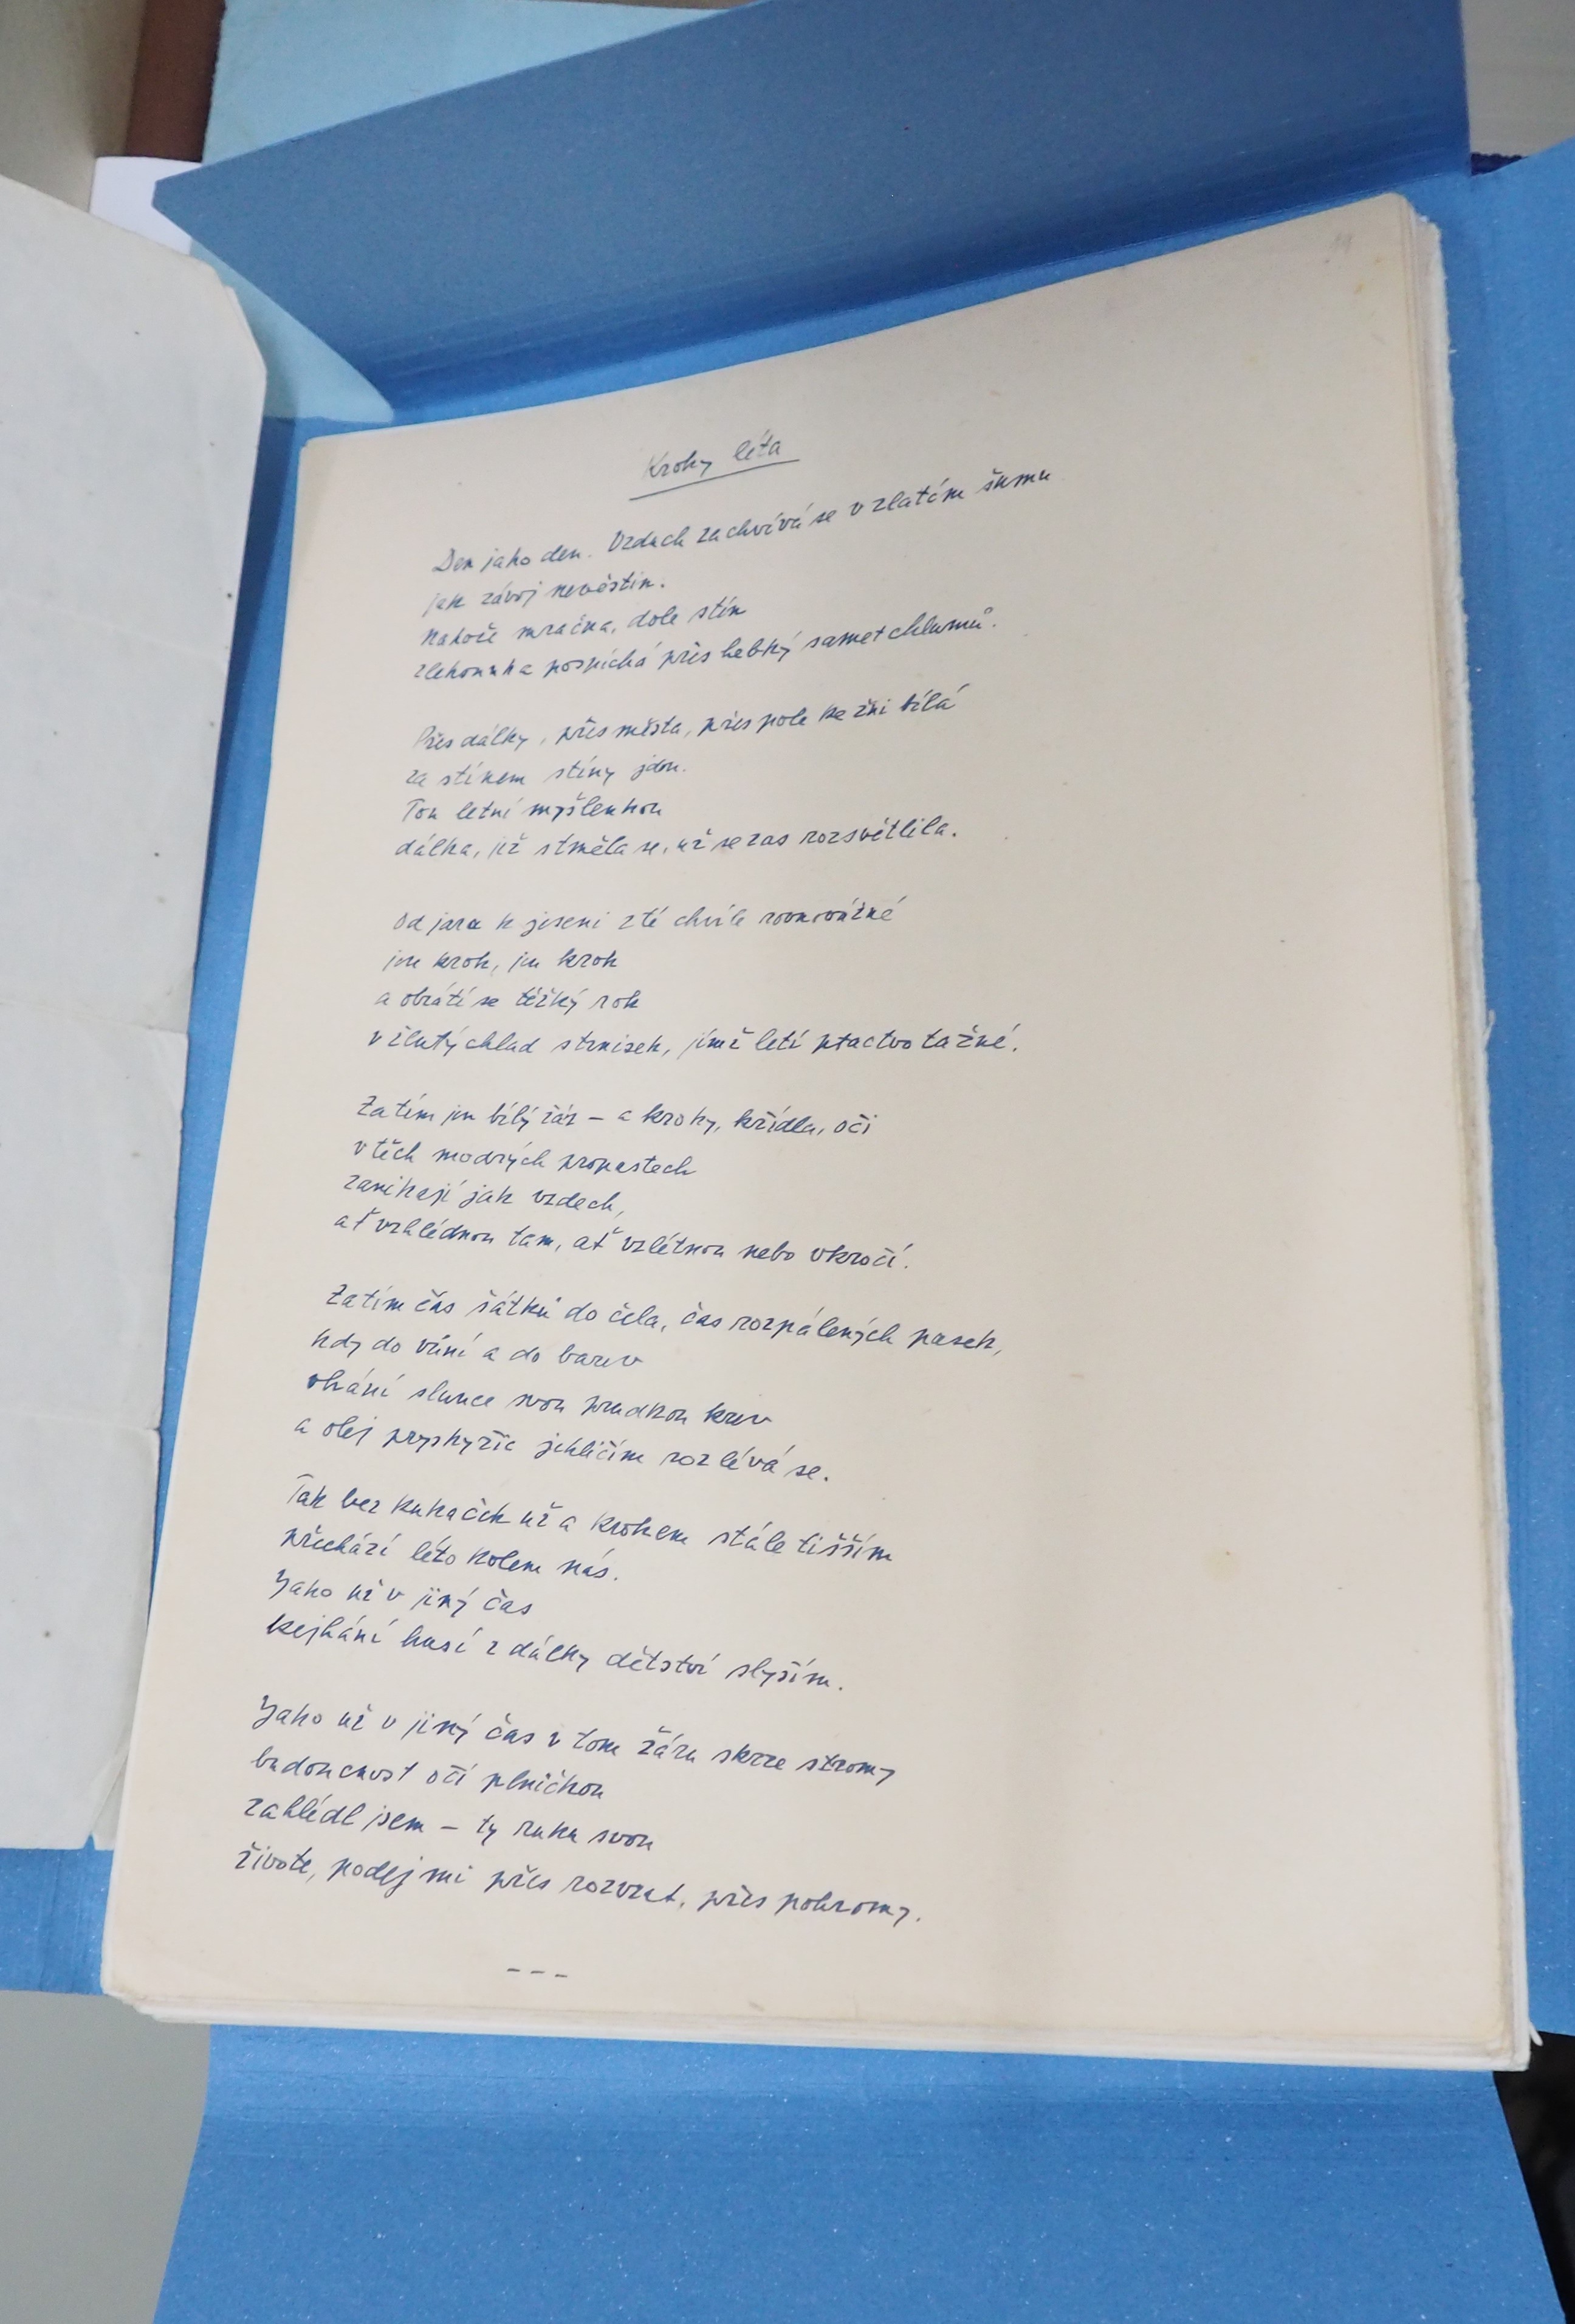 Kroky léta
Den jako den. Vzduch zachvívá se v zlatém šumu
jak závoj nevěstin.
Nahoře mračna, dole stín
zlehounka pospíchá přes hebký samet chlumů.
Přes dálky, přes města, přes pole ke žni bílá
za stínem stíny jdou.
Tou letní myšlenkou
dálka, jež stměla se, už se zas rozsvětlila.
Od jara k jeseni z té chvíle rovnovážné
jen krok, jen krok
a obrátí se těžký rok
v žlutý chlad strnisek, jimž letí ptactvo tažné.
Zatím jen bílý žár – a kroky, křídla, oči
v těch modrých propastech
zanikají jak vzdech,
ať vzhlédnou tam, ať vzlétnou nebo vkročí.
Zatím čas šátků do čela, čas rozpálených pasek,
kdy do vůní a do barev
vhání slunce svou prudkou krev
a olej pryskyřic jehličím rozlévá se.
Tak bez kukaček už a krokem stále tišším
přechází léto kolem nás.
Jako už v jiný čas
kejhání husí z dálky dětství slyším.
Jako už v jiný čas v tom žáru skrze stromy
budoucnost očí plničkou
zahlédl jsem – ty ruku svou
živote, podej mi přes rozvrat, přes pohromy.
---